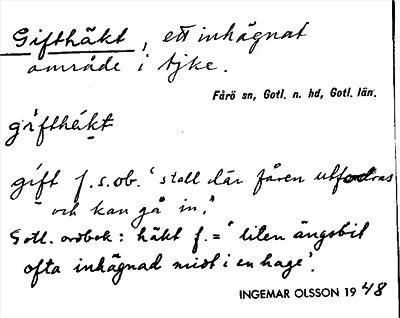 Gifthäkt, ett inhägnat
område i tjke.
Fårö sn, Gotl. n. hd, Gotl. län.
gifthäkt
gift f.s.ob. 'stall där fåren utfodras
och kan gå in.'
Gotl. ordbok: häkt f. = 'liten ängsbit
ofta inhägnad midt i en hage'.
INGEMAR OLSSON 1948